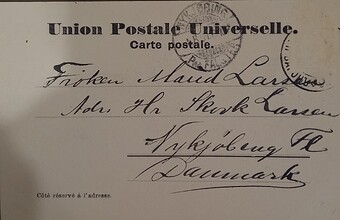 Union Postale Universelle.
Carte postale.
NYKJØBING
P. FALSTER
Fröken Maud Larsen
Adr. Hr Skovk Larsen
Nykjöbing Fl
Danmark
Côté réservé à l'adresse.